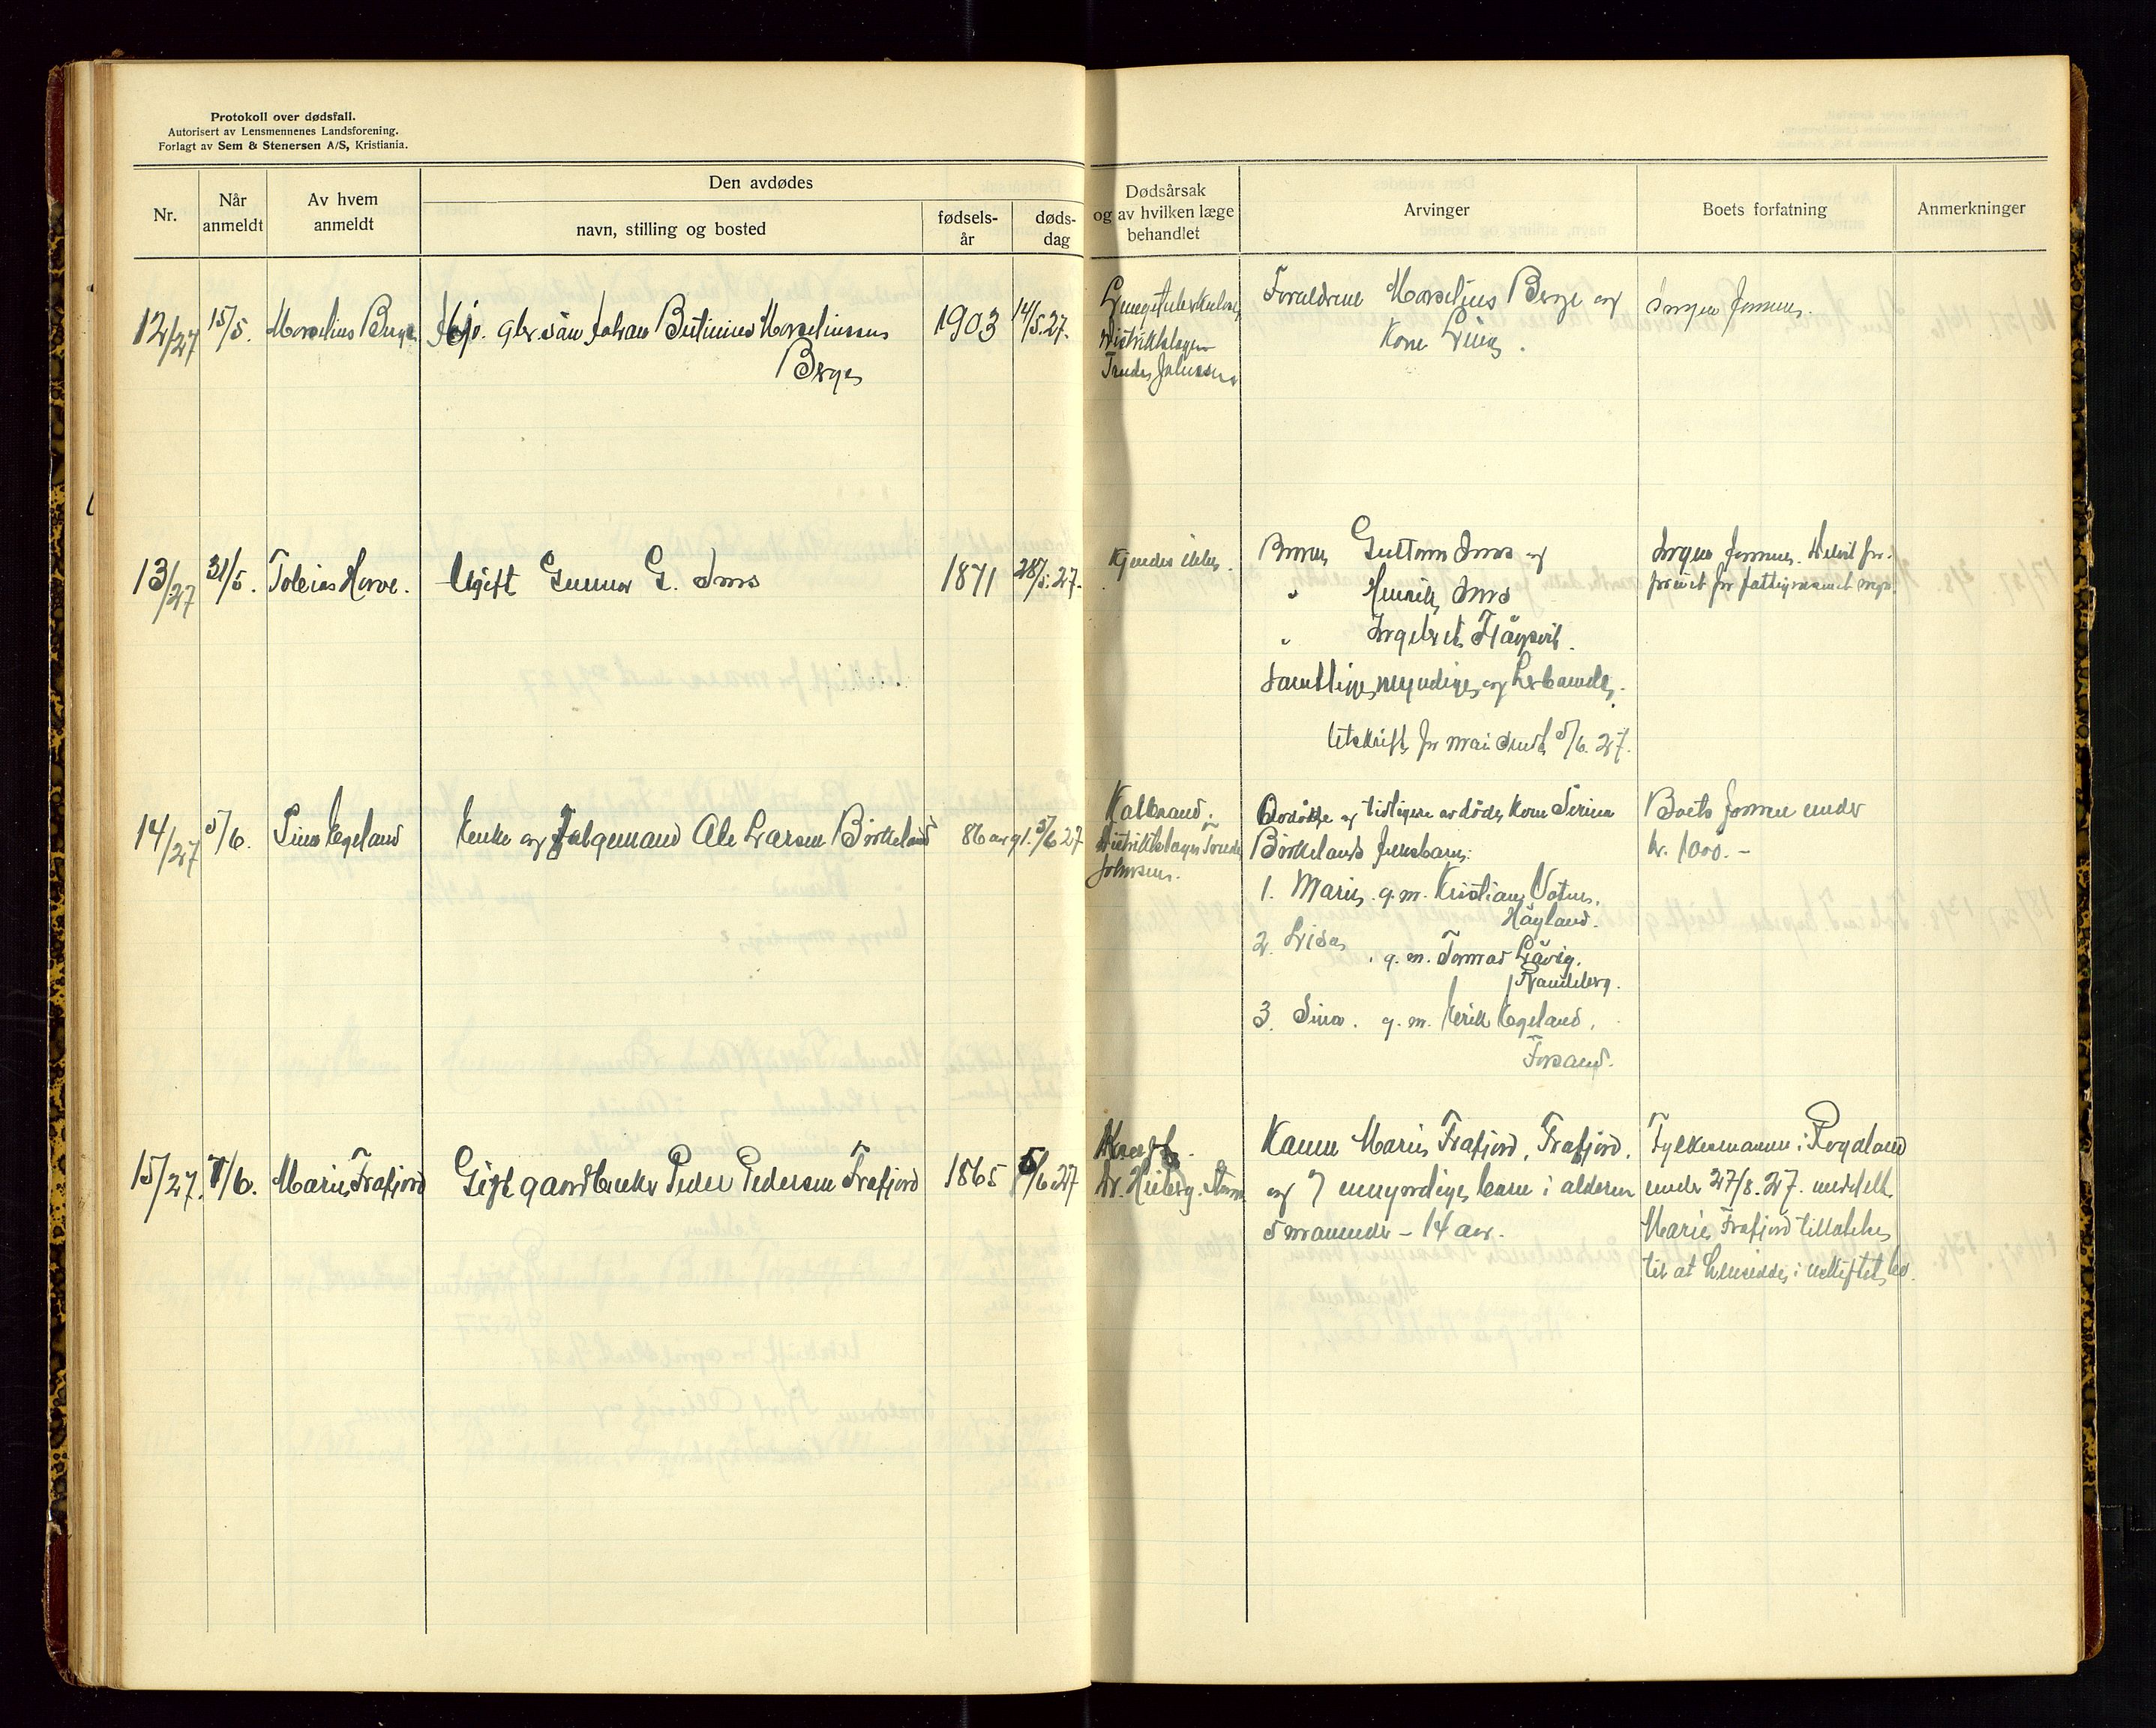 Protokoll over dødsfall.
Autorisert av Lensmennenes Landsforening.
Forlagt av Sem & Stenersen A/S, Kristiania.
Nr.
Når anmeldt
Av hvem anmeldt
Den avdødes
navn, stilling og bosted
fødsels-år
døds-dag
Dødsårsak og av hvilken læge behandlet
Arvinger
Boets forfatning
Anmerkninger
12/27
15/5.
Marselius Berge
sån Johan Marseliussen
Berge
1903
14/5.27.
Lungetuberkulose
Distriktslægen
Johnsen
Foreldrene Marselius Berge og
Kone
Ingen formue.
13/27
31/5.
Tobias Horve.
Ugift Gunnar G. Ims
1871
28/5.27.
Kjendes ikke.
Broren Guttorm Ims og
" Henrik Ims
" Ingebret
Samtlige myndige og
Utskrift for mai sendt 5/6.27.
Ingen formue.
14/27
5/6.
Sina Egeland
Enke og Ole Larsen Birkeland
86 aar gl.
5/6 27
Kalbrand.
Distriktslægen
Johnsen.
og tidligere avdøde kone Serina
Birkelands
1. Marie, g.m. Kristian
Høyland.
2. Lisa, g.m. Tomas
Randeberg.
3. Sina. g.m. Erik Egeland,
Forsand.
Boets formue under
kr. 1000.-
15/27.
7/6.
Marie Frafjord
Gift gaardbruker Peder Pedersen Frafjord
1865
5/6 27
Kræft.
Dr.
Konen Marie Frafjord, Frafjord.
og 7 umyndige barn i alderen
5 maaneder - 14 aar.
Fylkesmannen i Rogaland
under 27/8.27. meddelt
Marie Frafjord tillatelse
til at hensidde i uskiftet bo.